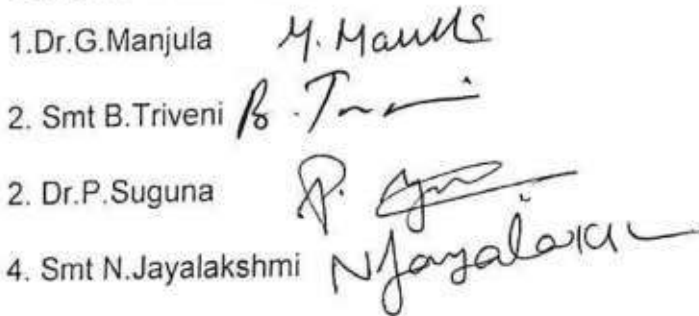 1.Dr.G.Manjula
2. Smt B.Triveni B.
2. Dr.P.Suguna P.
4. Smt N.Jayalakshmi NJayalaxu